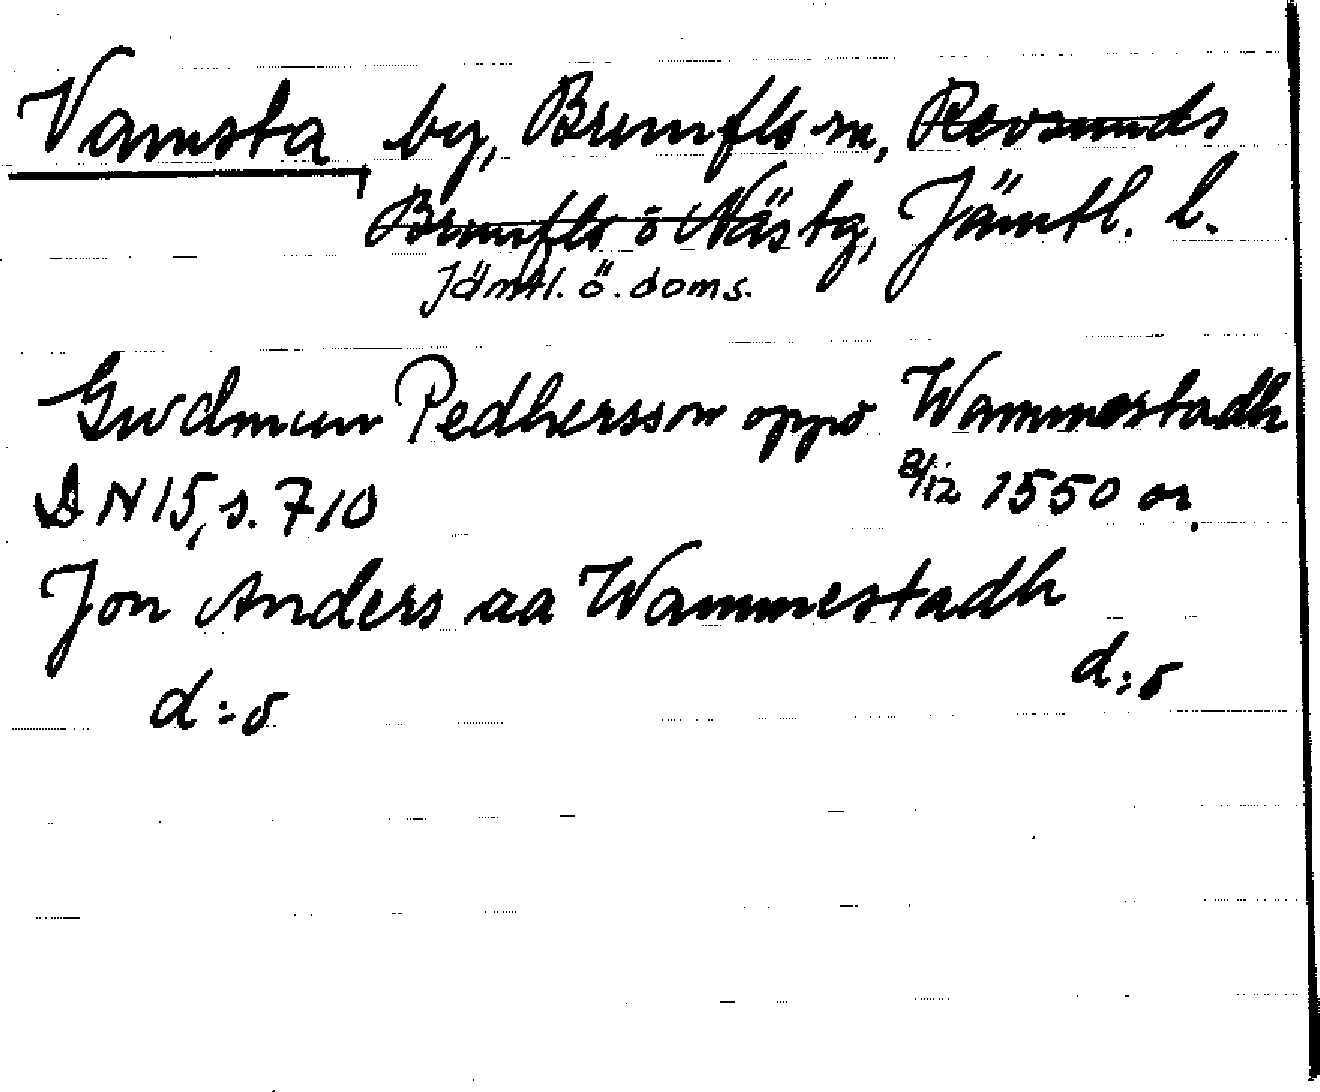 Vamsta, by, Brunflo sn, Revsunds
Brunflo o Näs tg, Jämtl. l.
Jämtl. ö. doms.
Gudmun Pedhersson oppo Wammestadh
DN 15, s. 710 8/12 1550 or.
Jon Anders aa Wammestadh
d:o d:o